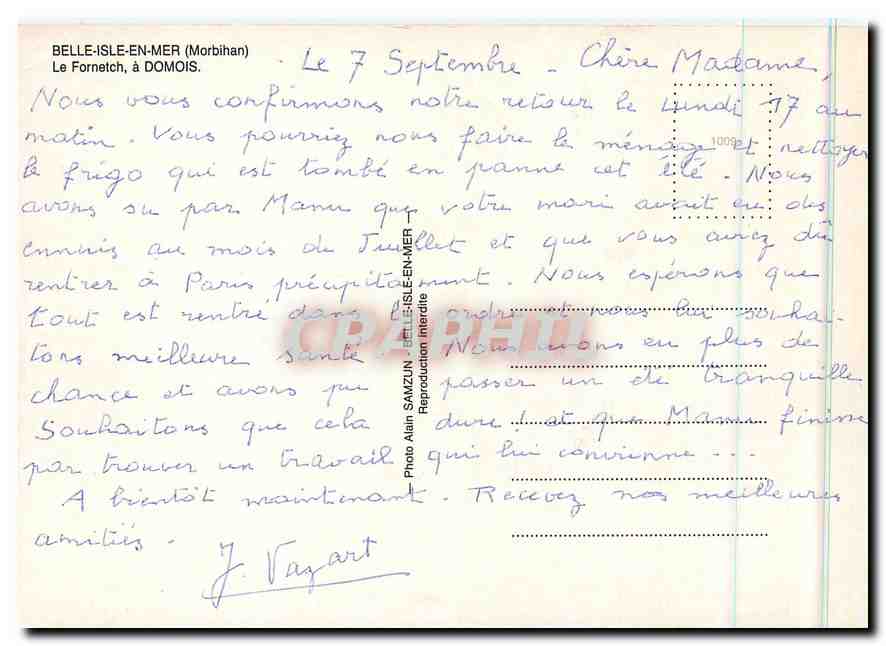 BELLE-ISLE-EN-MER (Morbihan)
Le Fornetch, à DOMOIS.
Le 7 Septembre - Chère Madame,
Nous vous confirmons notre retour le Lundi 17 au
matin. Vous pourriez nous faire le ménage et nettoyer
le frigo qui est tombé en panne cet été. Nous
avons su par Manu que votre mari avait eu des
ennuis au mois de Juillet et que vous aviez dû
rentrer à Paris précipitamment. Nous espérons que
tout est rentré dans l'ordre et nous lui souhai-
tons meilleure santé. Nous avons eu plus de
chance et avons pu passer un été tranquille
Souhaitons que cela dure! et que Manu finisse
par trouver un travail qui lui convienne...
A bientôt maintenant. Recevez nos meilleures
amitiés.
J. Vazart
1009
Photo Alain SAMZUN - BELLE-ISLE-EN-MER
Reproduction interdite
CPARTHI